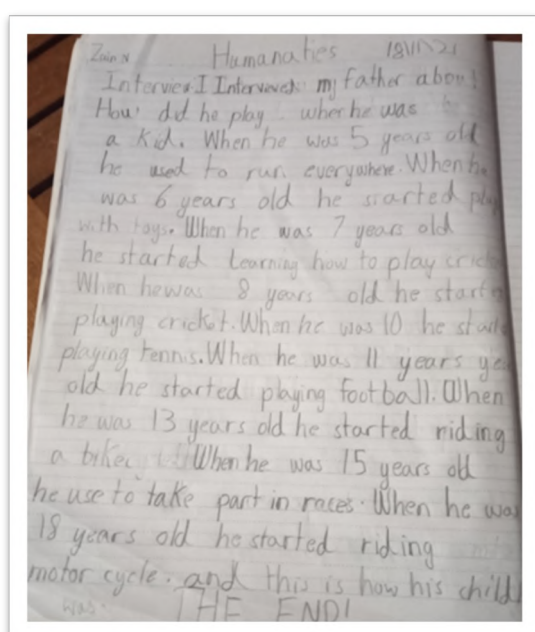 Zain N Humanaties 18/11/21
Interview I Interviewed my father abou
How did he play when he was
a kid. When he was 5 years old
he used to run everywhere. When he
was 6 years old he started play
with toys. When he was 7 years old
he started learning how to play crick
When he was 8 years old he starte
playing cricket. When he was 10 he starte
playing tennis. When he was 11 years ye
old he started playing football. When
he was 13 years old he started riding
a bike. When he was 15 years old
he use to take part in races. When he was
18 years old he started riding
motor cycle. and this is how his child
was. THE END!